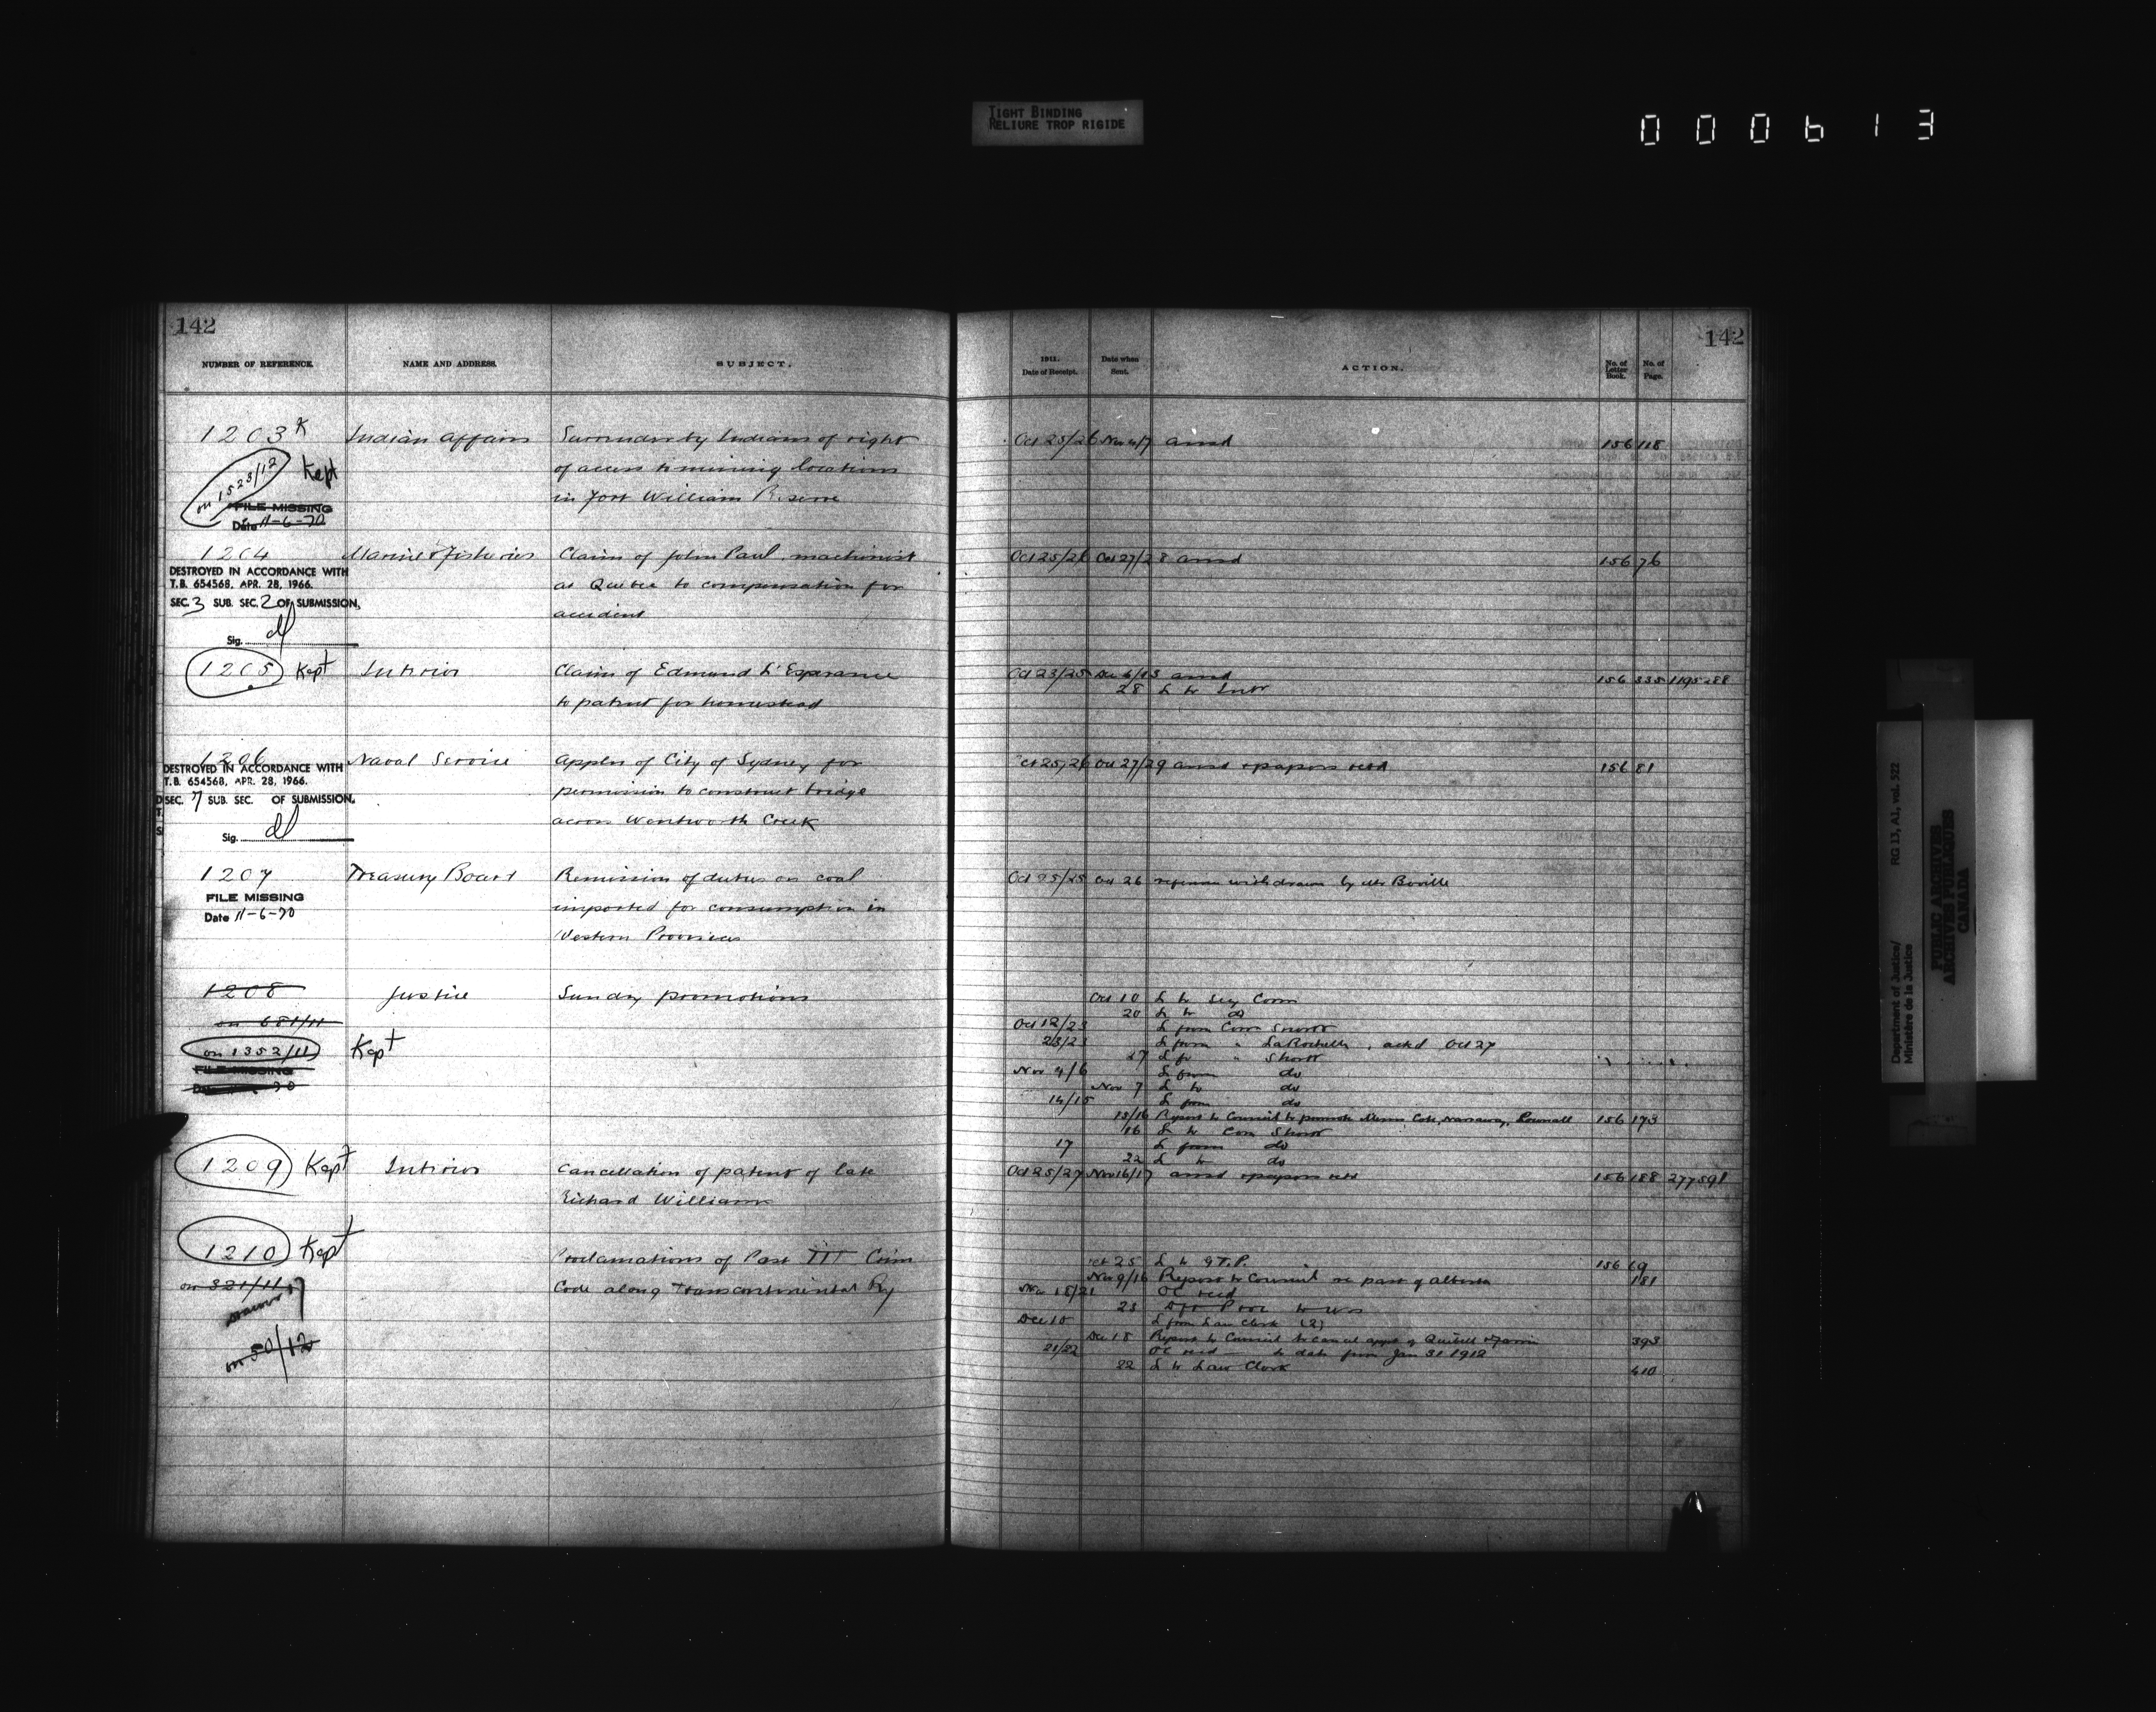 TIGHT BINDING
RELIURE TROP RIGIDE
000613
142
NUMBER OF REFERENCE.
NAME AND ADDRESS.
SUBJECT.
1203 K Indian Affairs Surrender by Indians of right
on 1523/12 Kept of access to mining locations
in Fort William Reserve
FILE MISSING
Date 11-6-70
1204 Marine & Fisheries Claim of John Paul machinist
DESTROYED IN ACCORDANCE WITH
T.B. 654568, APR. 28, 1966.
SEC. 3 SUB. SEC. 2 OF SUBMISSION,
Sig.
at Quebec to compensation for
accident
1205 Kept Interior Claim of Edmund L'Esperance
to patent for homestead
1206 Naval Service Appln of City of Sydney for
DESTROYED IN ACCORDANCE WITH
T.B. 654568, APR. 28, 1966.
SEC. 7 SUB. SEC. OF SUBMISSION,
Sig.
permission to construct bridge
across Wentworth Creek
1207 Treasury Board Remission of duties on coal
FILE MISSING
Date 11-6-70
imported for consumption in
Western Provinces
1208 Justice Sundry promotions
on 681/11
on 1352/11 Kept
FILE MISSING
1209 Kept Interior Cancellation of patent of late
Richard Williams
1210 Kept Proclamations of Part III Crim
on 321/11 Code along Transcontinental Ry
on 50/12
142
1911.
Date of Receipt.
Date when
Sent.
ACTION.
No. of
Letter
Book.
No. of
Page.
Oct 25/26 Nov 6/7 ansd 156 118
Oct 25/26 Oct 27/28 ansd 156 76
Oct 23/25 Dec 6/13 ansd 156 335 1195288
28 L to Intr
Oct 25/26 Oct 27/29 ansd & papers retd 156 81
Oct 25/25 Oct 26 reference withdrawn by Mr Boville
Oct 10 L to Secy Comn
20 L to do
Oct 12/23 L from Com Shortt
23/23 L from " LaRochelle, ackd Oct 27
27 L to " Shortt
Nov 4/6 L from do
Nov 7 L to do
14/15 L from do
15/16 Report to Council to promote Cote, Narraway, Pownall 156 173
16 L to Com Shortt
17 L from do
22 L to do
Oct 25/27 Nov 16/17 ansd & papers retd 156 188 277591
Oct 25 L to G.T.P. 156 69
Nov 9/16 Report to Council re part of Alberta 181
Nov 18/21 OC recd
Dec 10 L from Law Clerk (2)
Dec 18 Report to Council to cancel appt of Quibell & 393
21/22 OC recd to date from Jan 31 1912
22 L to Law Clerk 410
Department of Justice/
Ministère de la Justice
RG 13, A1, vol. 522
PUBLIC ARCHIVES
ARCHIVES PUBLIQUES
CANADA